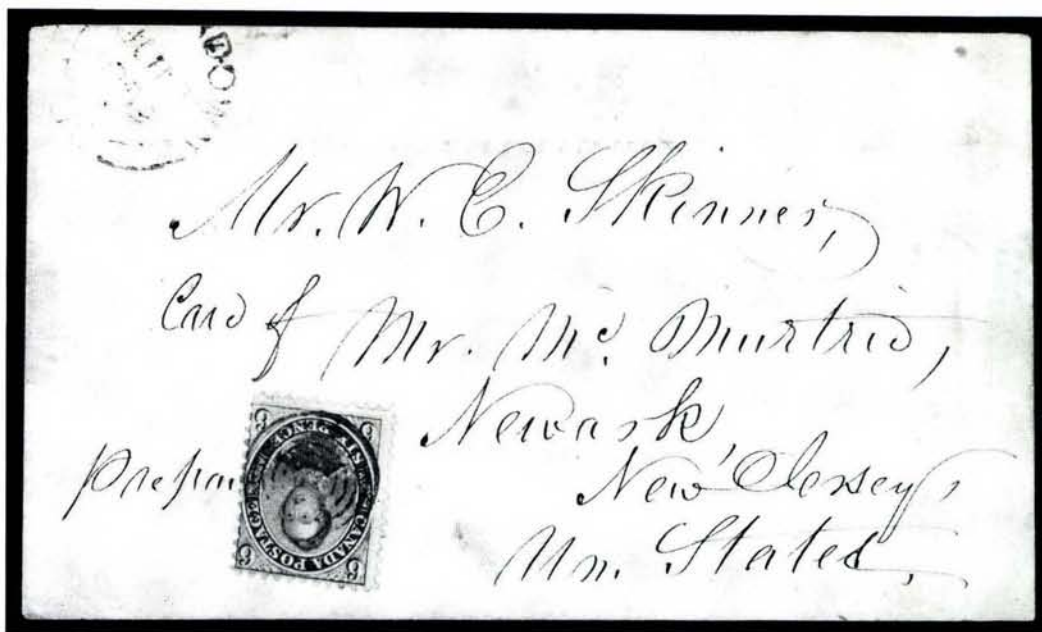 Mr. W. C. Skinner,
Care of Mr. Mc. Murtrie,
Newark,
New Jersey,
Un. States,
CANADA POSTAGE SIX PENCE
6 6 6 6